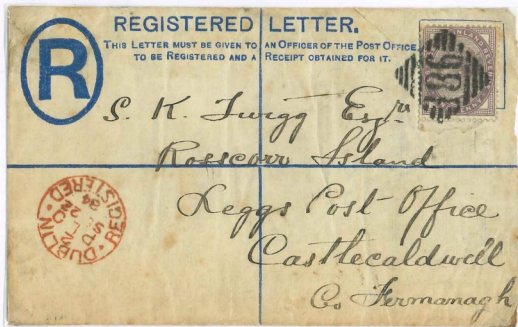 REGISTERED LETTER.
THIS LETTER MUST BE GIVEN TO AN OFFICER OF THE POST OFFICE
TO BE REGISTERED AND A RECEIPT OBTAINED FOR IT.
R
186
S. K. Twigg Esqr
Rosscorr Island
Leggs Post Office
Castlecaldwell
Co Fermanagh
REGISTERED
DUBLIN